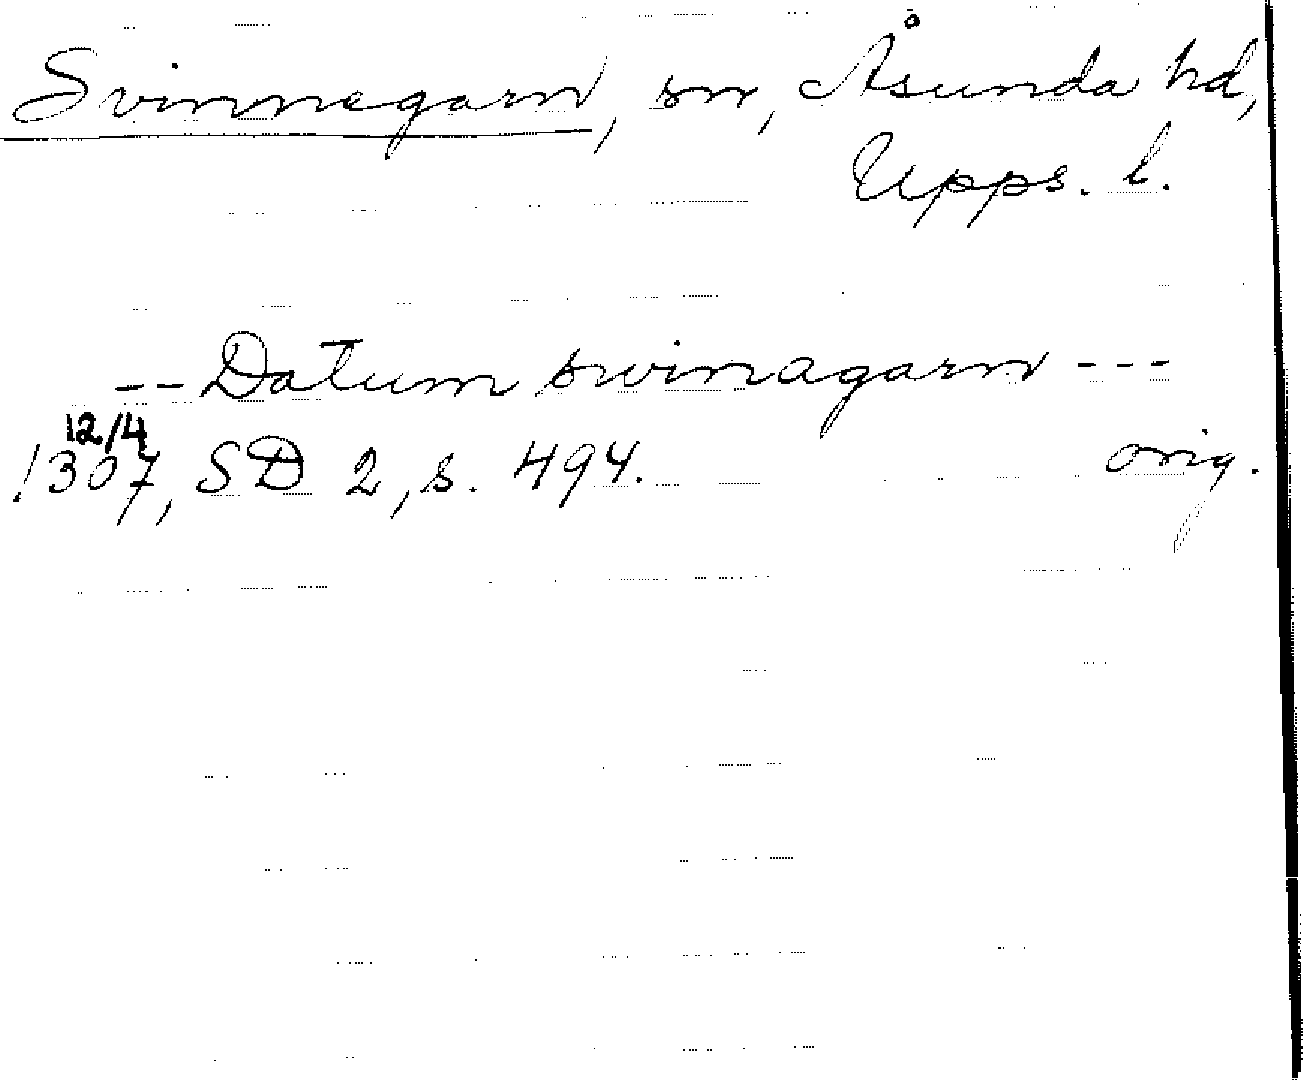 Svinnegarn, sn, Åsunda hd,
Upps. l.
-- Datum swinagarn ---
12/4
1307, SD 2, s. 494. orig.